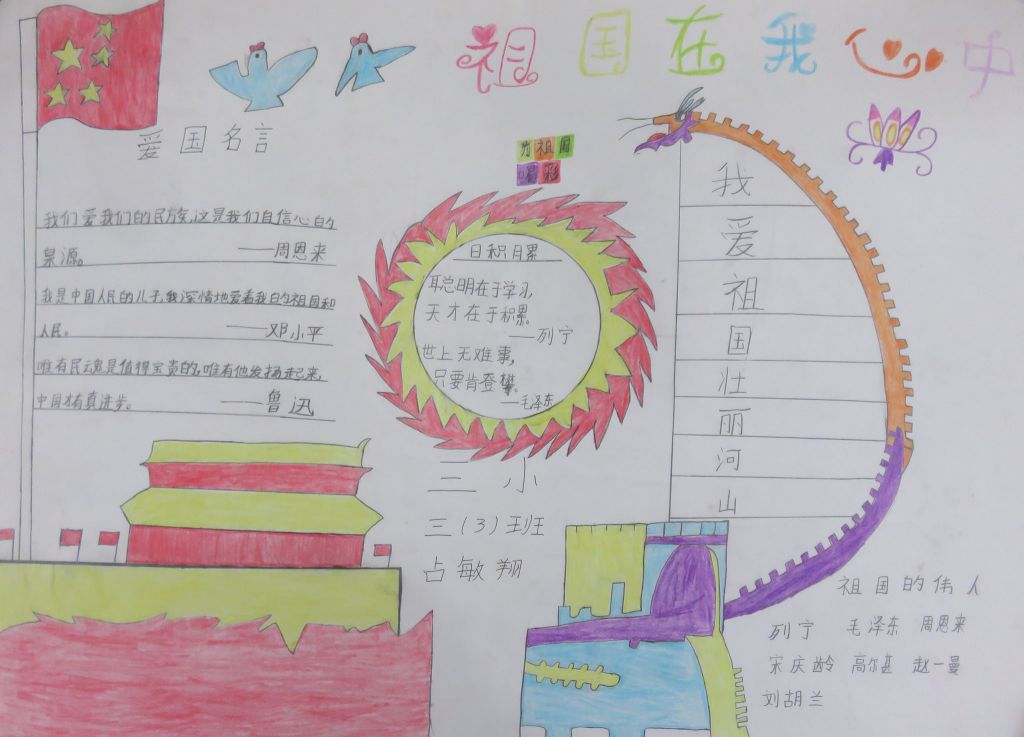 祖国在我心中
爱国名言
我们爱我们的民族,这是我们自信心的
泉源。 ——周恩来
我是中国人民的儿子,我深情地爱着我的祖国和
人民。 ——邓小平
唯有民魂是值得宝贵的,唯有他发扬起来,
中国才有真进步。 ——鲁迅
为祖国
喝彩
日积月累
聪明在于学习,
天才在于积累。
——列宁
世上无难事,
只要肯登攀。
——毛泽东
三小
三(3)班
占敏翔
我
爱
祖
国
壮
丽
河
山
祖国的伟人
列宁 毛泽东 周恩来
宋庆龄 高尔基 赵一曼
刘胡兰